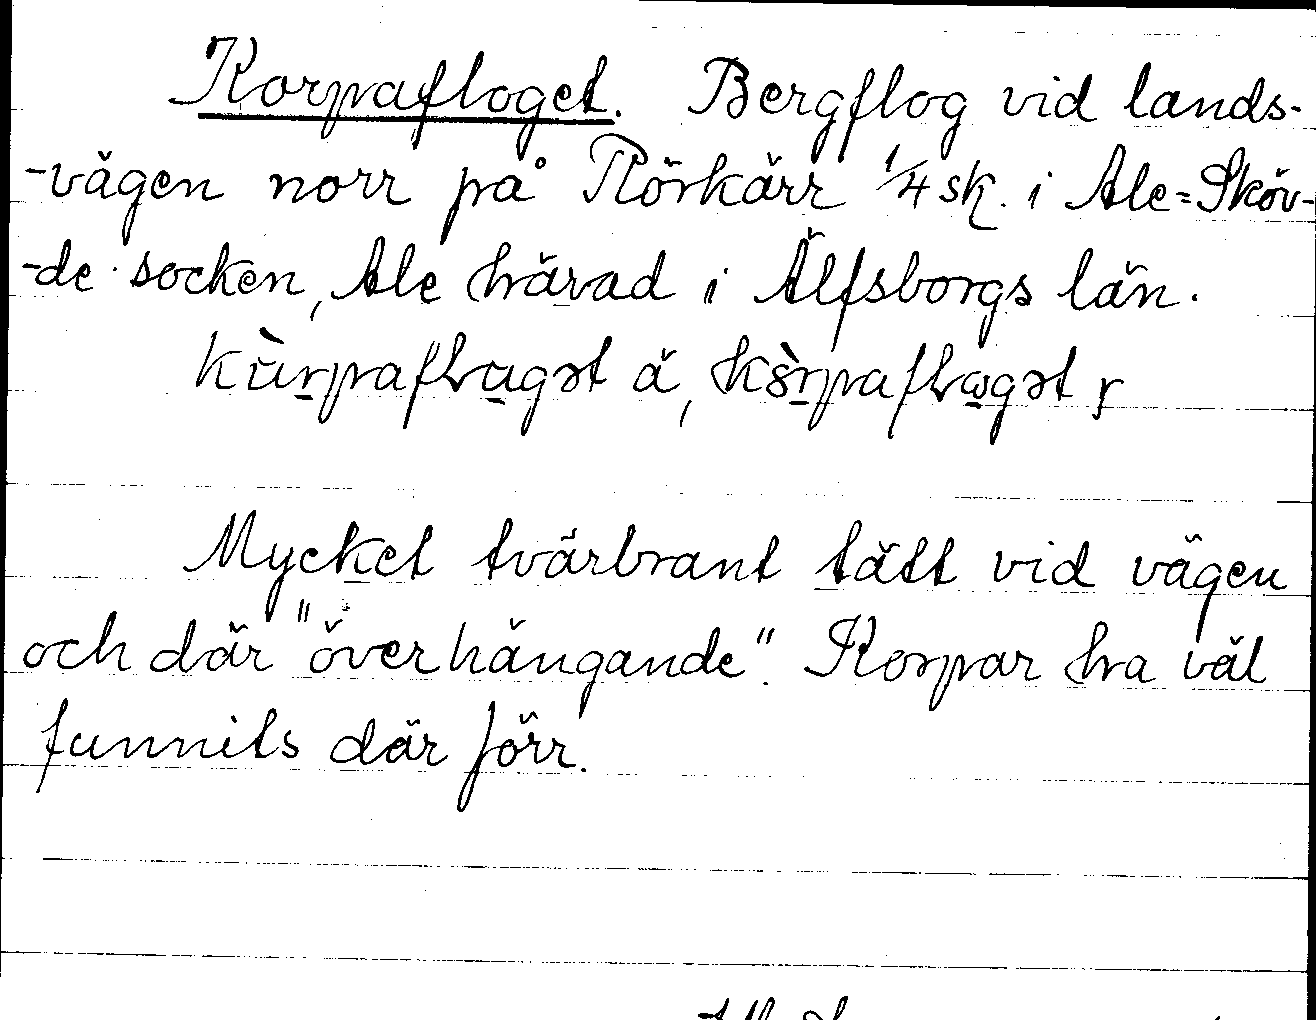 Korpafloget. Bergflog vid lands-
-vägen norr på Rörkärr 1/4 sk. i Ale=Sköv-
-de socken, Ale härad i Älfsborgs län.
Mycket tvärbrant tätt vid vägen
och där "överhängande". Korpar ha väl
funnits där förr.